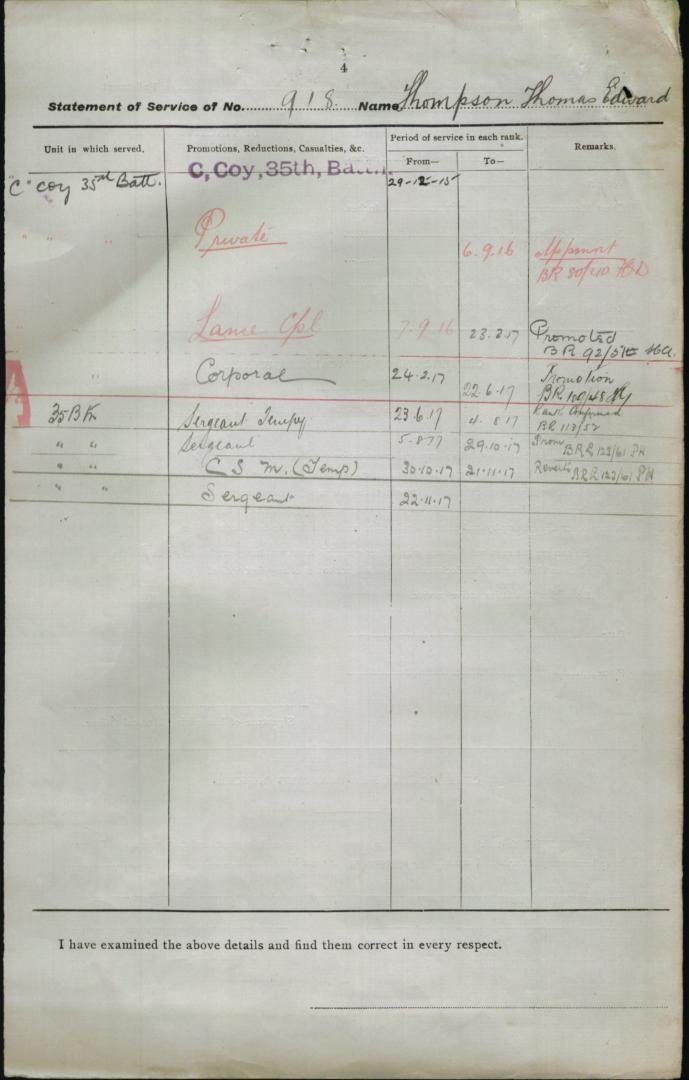 4
Statement of Service of No. 918 Name Thompson Thomas Edward
Unit in which served. Promotions, Reductions, Casualties, &c. Period of service in each rank. Remarks.
From— To—
C, Coy, 35th, Battn.
"C" coy 35th Batt. 29-12-15
" " " Private 6.9.16 Appmnt
BR 80/210
Lance Cpl 7.9.16 23.2.17 Promoted
BR 92/
" Corporal 24.2.17 22.6.17 Promotion
BR 100/48
A
35 Bn Sergeant Tempy 23.6.17 4.8.17 Rank Confirmed
BR 113/52
" " Sergeant 5.8.17 29.10.17 Prom BRR 122/61 PH
" " C S M. (Temp) 30.10.17 21.11.17 Reverts BRR 122/61 PH
" " Sergeant 22.11.17
I have examined the above details and find them correct in every respect.